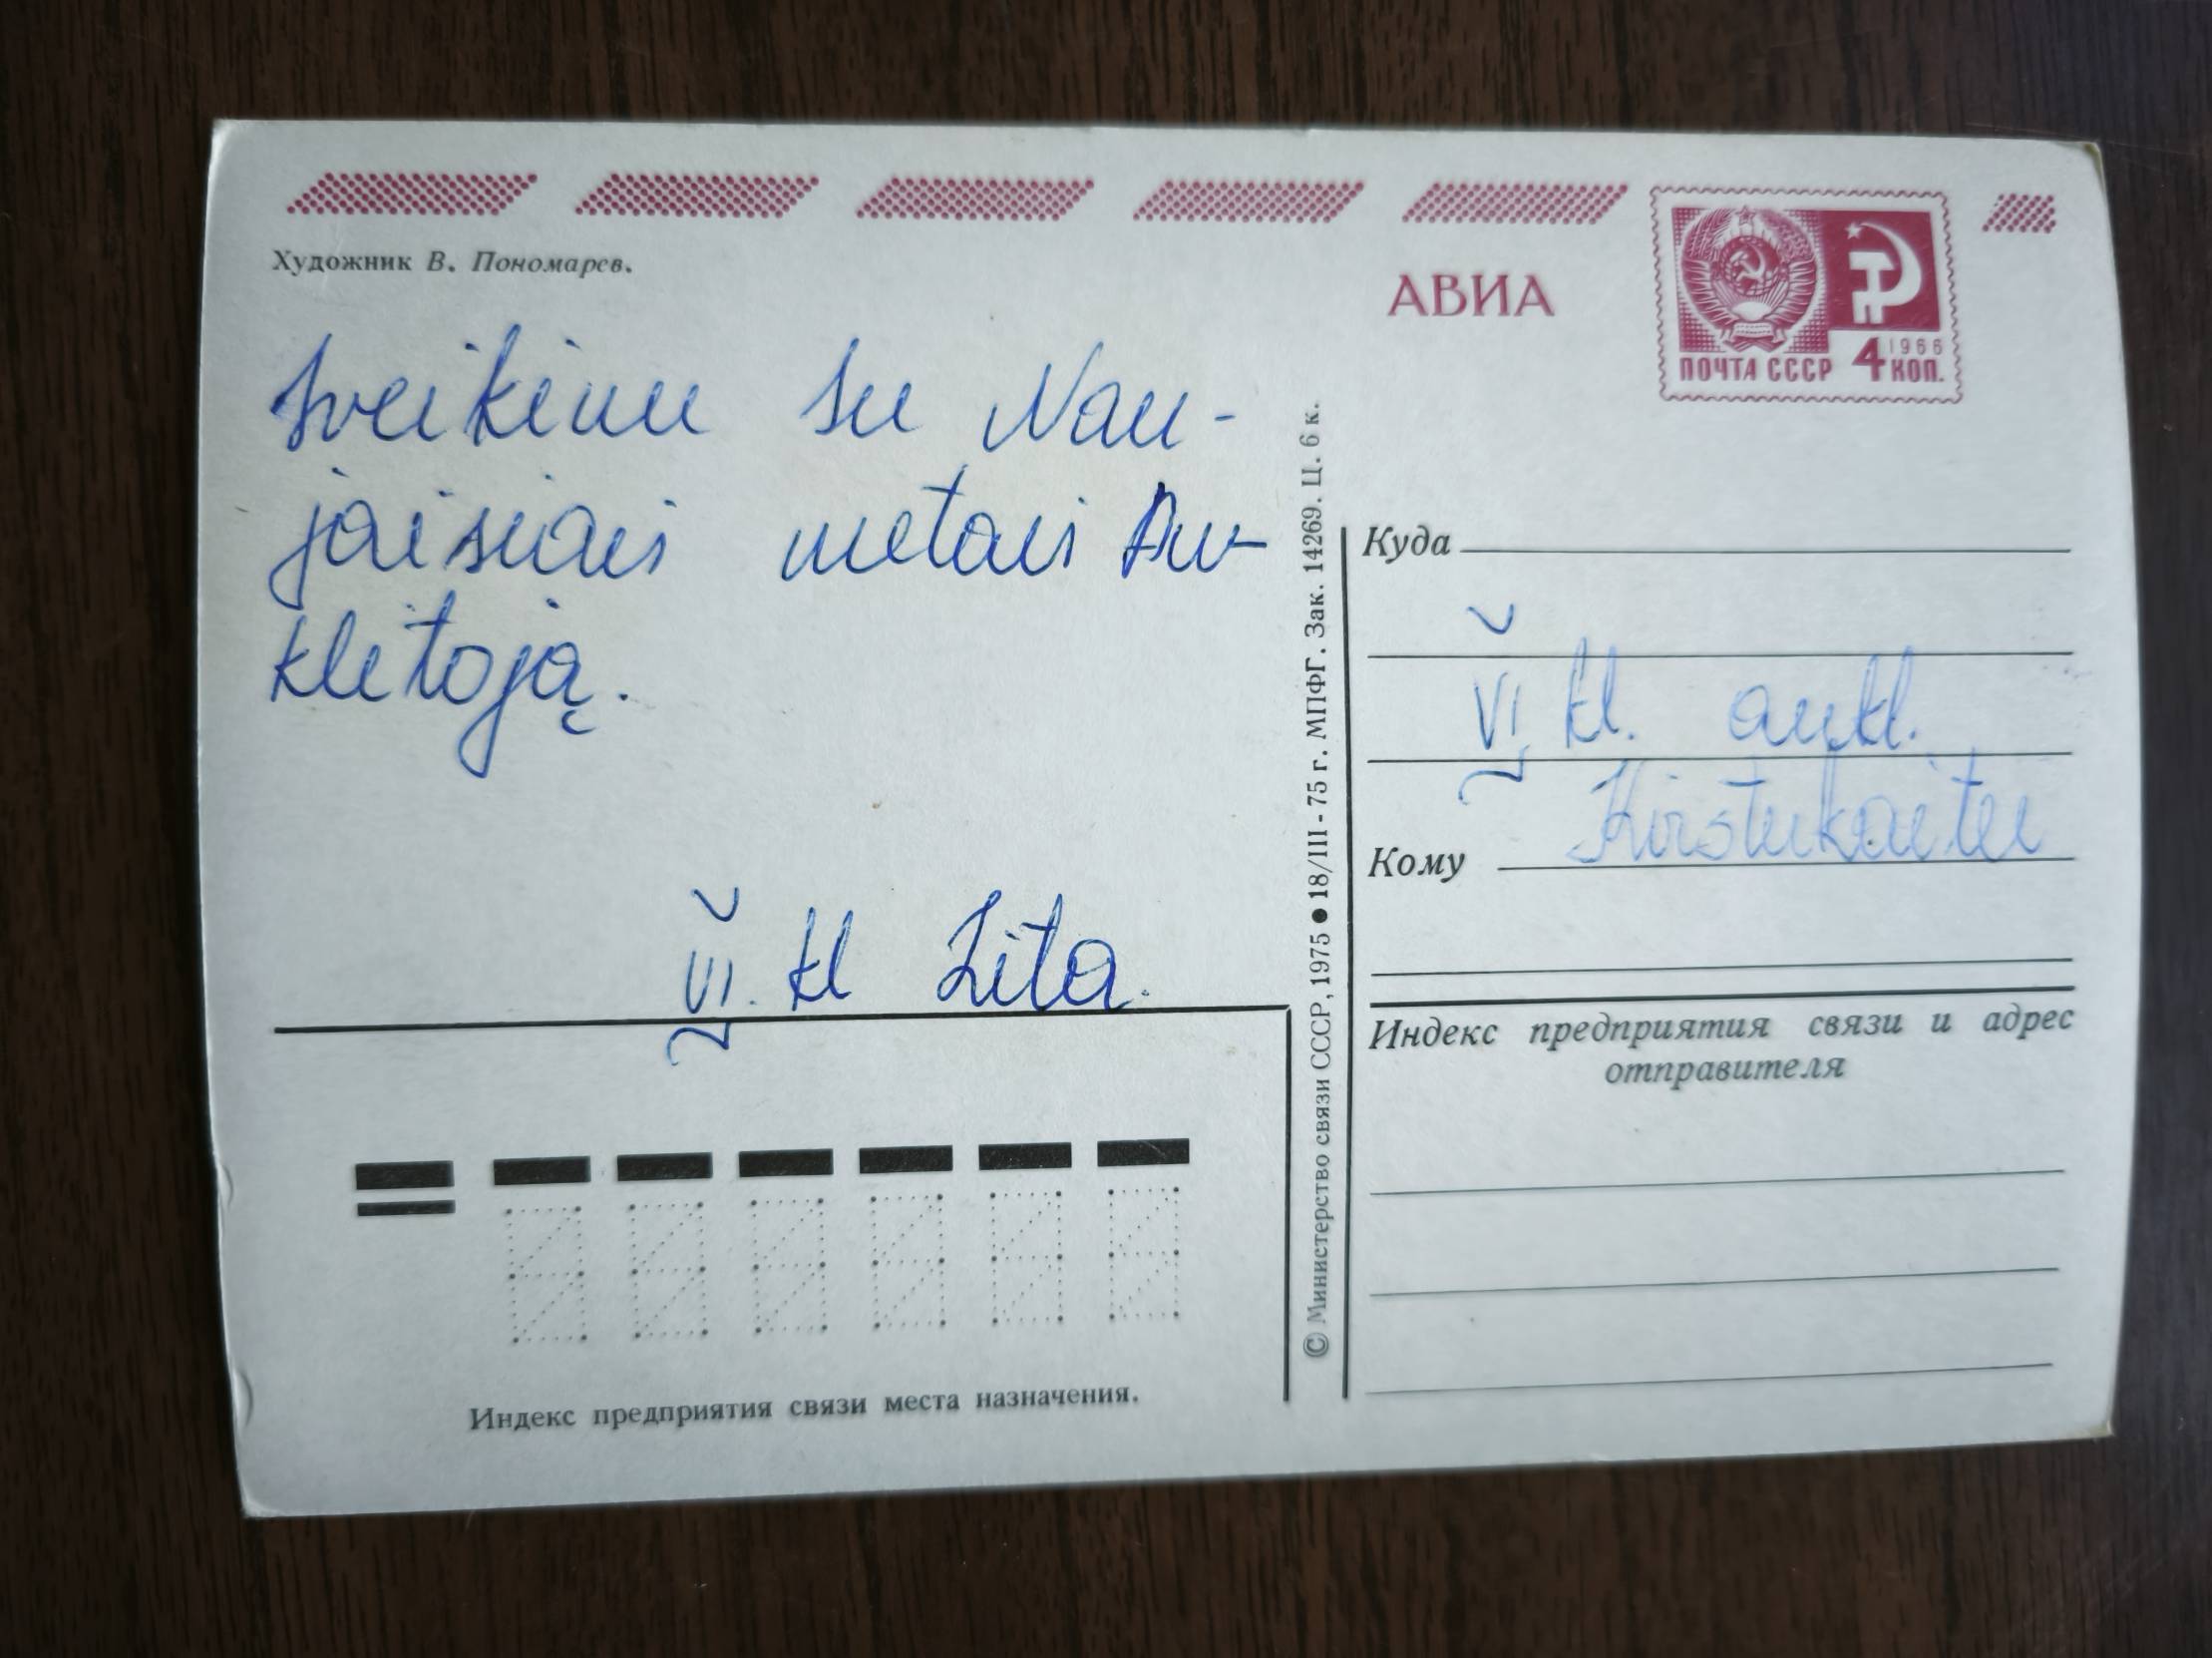 Художник В. Пономарев.
АВИА
1966
ПОЧТА СССР 4 КОП.
Sveikinu su Nau-
jaisiais metais Au-
klėtoją.
VI. kl Zita.
Индекс предприятия связи места назначения.
© Министерство связи СССР, 1975 ● 18/III - 75 г. МПФГ. Зак. 14269. Ц. 6 к.
Куда
VI kl. aukl.
Кому
Индекс предприятия связи и адрес
отправителя